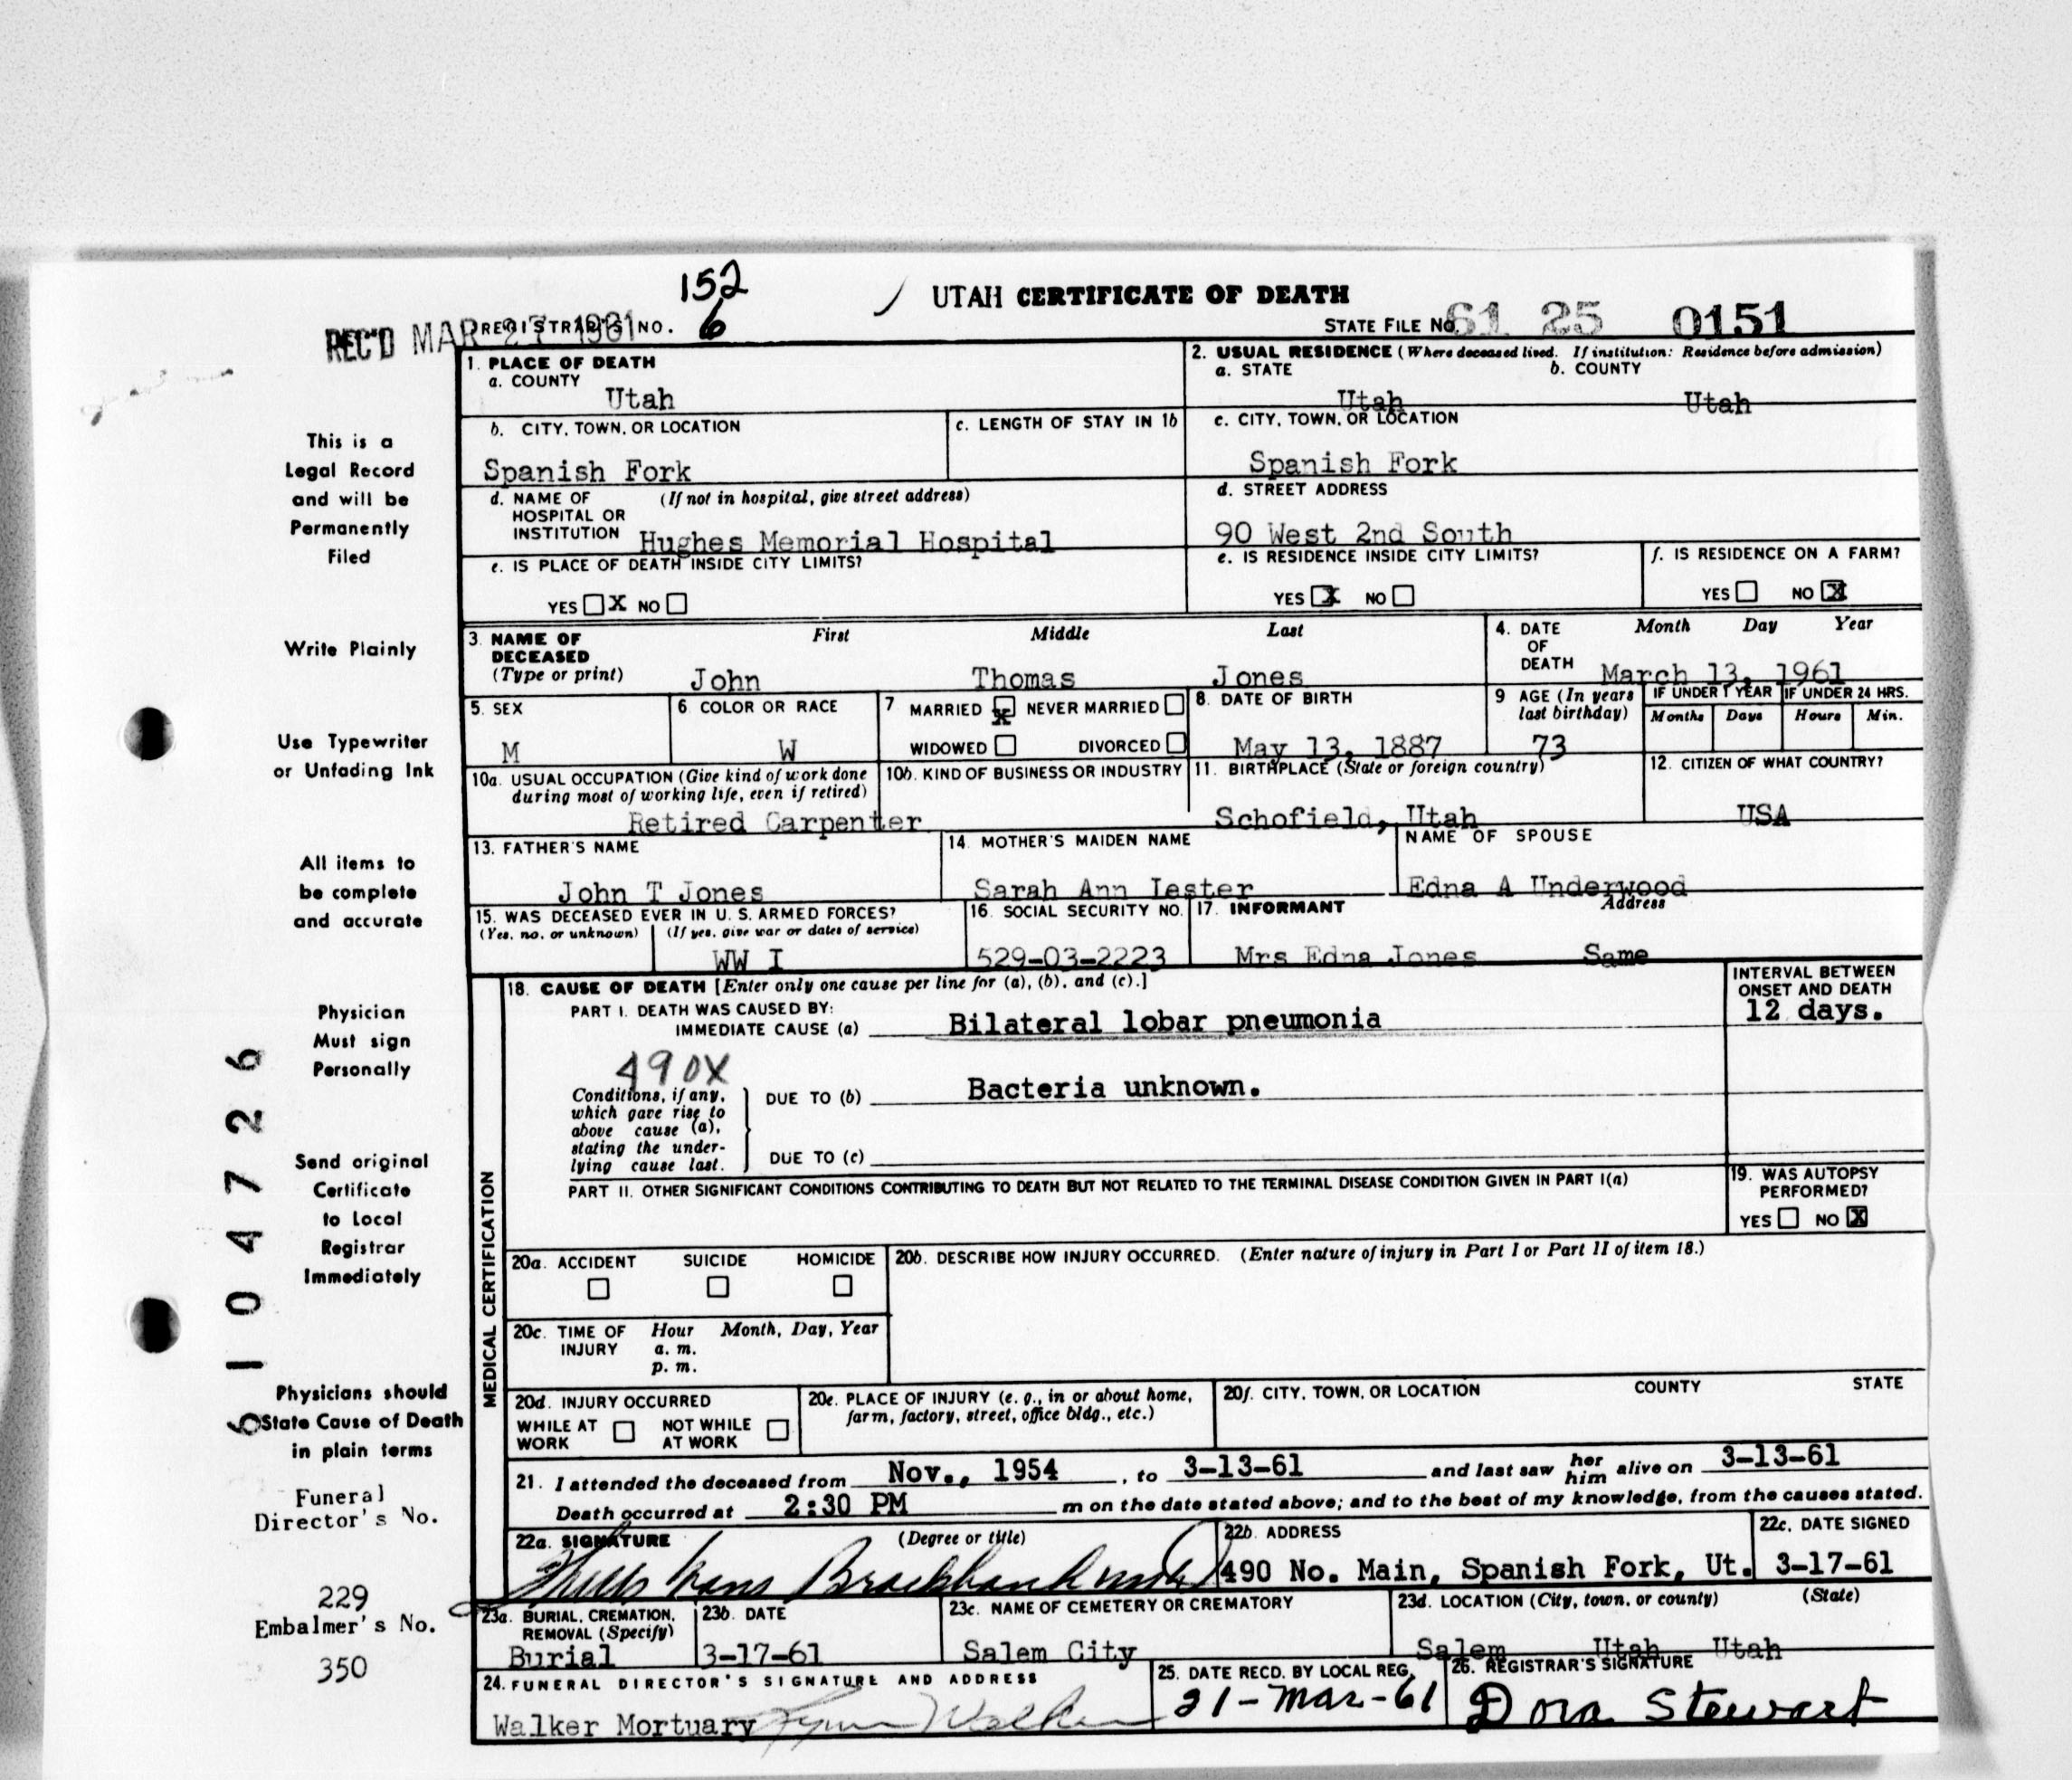 152
UTAH CERTIFICATE OF DEATH
REC'D MAR 27 1961 REGISTRAR'S NO. 6
STATE FILE NO. 61 25 0151
This is a
Legal Record
and will be
Permanently
Filed
Write Plainly
Use Typewriter
or Unfading Ink
All items to
be complete
and accurate
Physician
Must sign
Personally
Send original
Certificate
to Local
Registrar
Immediately
Physicians should
State Cause of Death
in plain terms
Funeral
Director's No.
229
Embalmer's No.
350
6 104726
1. PLACE OF DEATH
a. COUNTY
Utah
2. USUAL RESIDENCE (Where deceased lived. If institution: Residence before admission)
a. STATE b. COUNTY
Utah Utah
b. CITY, TOWN, OR LOCATION
Spanish Fork
c. LENGTH OF STAY IN 1b
c. CITY, TOWN, OR LOCATION
Spanish Fork
d. NAME OF (If not in hospital, give street address)
HOSPITAL OR
INSTITUTION Hughes Memorial Hospital
d. STREET ADDRESS
90 West 2nd South
e. IS PLACE OF DEATH INSIDE CITY LIMITS?
YES X NO
e. IS RESIDENCE INSIDE CITY LIMITS?
YES X NO
f. IS RESIDENCE ON A FARM?
YES NO X
3. NAME OF
DECEASED
(Type or print)
First Middle Last
John Thomas Jones
4. DATE
OF
DEATH
Month Day Year
March 13, 1961
5. SEX
M
6. COLOR OR RACE
W
7 MARRIED X NEVER MARRIED
WIDOWED DIVORCED
8. DATE OF BIRTH
May 13, 1887
9 AGE (In years
last birthday)
73
IF UNDER 1 YEAR IF UNDER 24 HRS.
Months Days Hours Min.
10a. USUAL OCCUPATION (Give kind of work done
during most of working life, even if retired)
Retired Carpenter
10b. KIND OF BUSINESS OR INDUSTRY
11. BIRTHPLACE (State or foreign country)
Schofield, Utah
12. CITIZEN OF WHAT COUNTRY?
USA
13. FATHER'S NAME
John T Jones
14. MOTHER'S MAIDEN NAME
Sarah Ann Lester
NAME OF SPOUSE
Edna A Underwood
15. WAS DECEASED EVER IN U. S. ARMED FORCES?
(Yes, no, or unknown) (If yes, give war or dates of service)
WW I
16. SOCIAL SECURITY NO.
529-03-2223
17. INFORMANT Address
Mrs Edna Jones Same
MEDICAL CERTIFICATION
18. CAUSE OF DEATH [Enter only one cause per line for (a), (b), and (c).]
PART I. DEATH WAS CAUSED BY:
IMMEDIATE CAUSE (a) Bilateral lobar pneumonia
INTERVAL BETWEEN
ONSET AND DEATH
12 days.
490X
Conditions, if any,
which gave rise to
above cause (a),
stating the under-
lying cause last.
DUE TO (b) Bacteria unknown.
DUE TO (c)
PART II. OTHER SIGNIFICANT CONDITIONS CONTRIBUTING TO DEATH BUT NOT RELATED TO THE TERMINAL DISEASE CONDITION GIVEN IN PART I(a)
19. WAS AUTOPSY
PERFORMED?
YES NO X
20a. ACCIDENT SUICIDE HOMICIDE
20b. DESCRIBE HOW INJURY OCCURRED. (Enter nature of injury in Part I or Part II of item 18.)
20c. TIME OF Hour Month, Day, Year
INJURY a. m.
p. m.
20d. INJURY OCCURRED
WHILE AT NOT WHILE
WORK AT WORK
20e. PLACE OF INJURY (e. g., in or about home,
farm, factory, street, office bldg., etc.)
20f. CITY, TOWN, OR LOCATION COUNTY STATE
21. I attended the deceased from Nov., 1954, to 3-13-61 and last saw her him alive on 3-13-61
Death occurred at 2:30 PM m on the date stated above; and to the best of my knowledge, from the causes stated.
22a. SIGNATURE (Degree or title)
Brockbank
22b. ADDRESS
490 No. Main, Spanish Fork, Ut.
22c. DATE SIGNED
3-17-61
23a. BURIAL, CREMATION,
REMOVAL (Specify)
Burial
23b. DATE
3-17-61
23c. NAME OF CEMETERY OR CREMATORY
Salem City
23d. LOCATION (City, town, or county) (State)
Salem Utah Utah
24. FUNERAL DIRECTOR'S SIGNATURE AND ADDRESS
Walker Mortuary Walker
25. DATE RECD. BY LOCAL REG.
21-Mar-61
26. REGISTRAR'S SIGNATURE
Dora Stewart